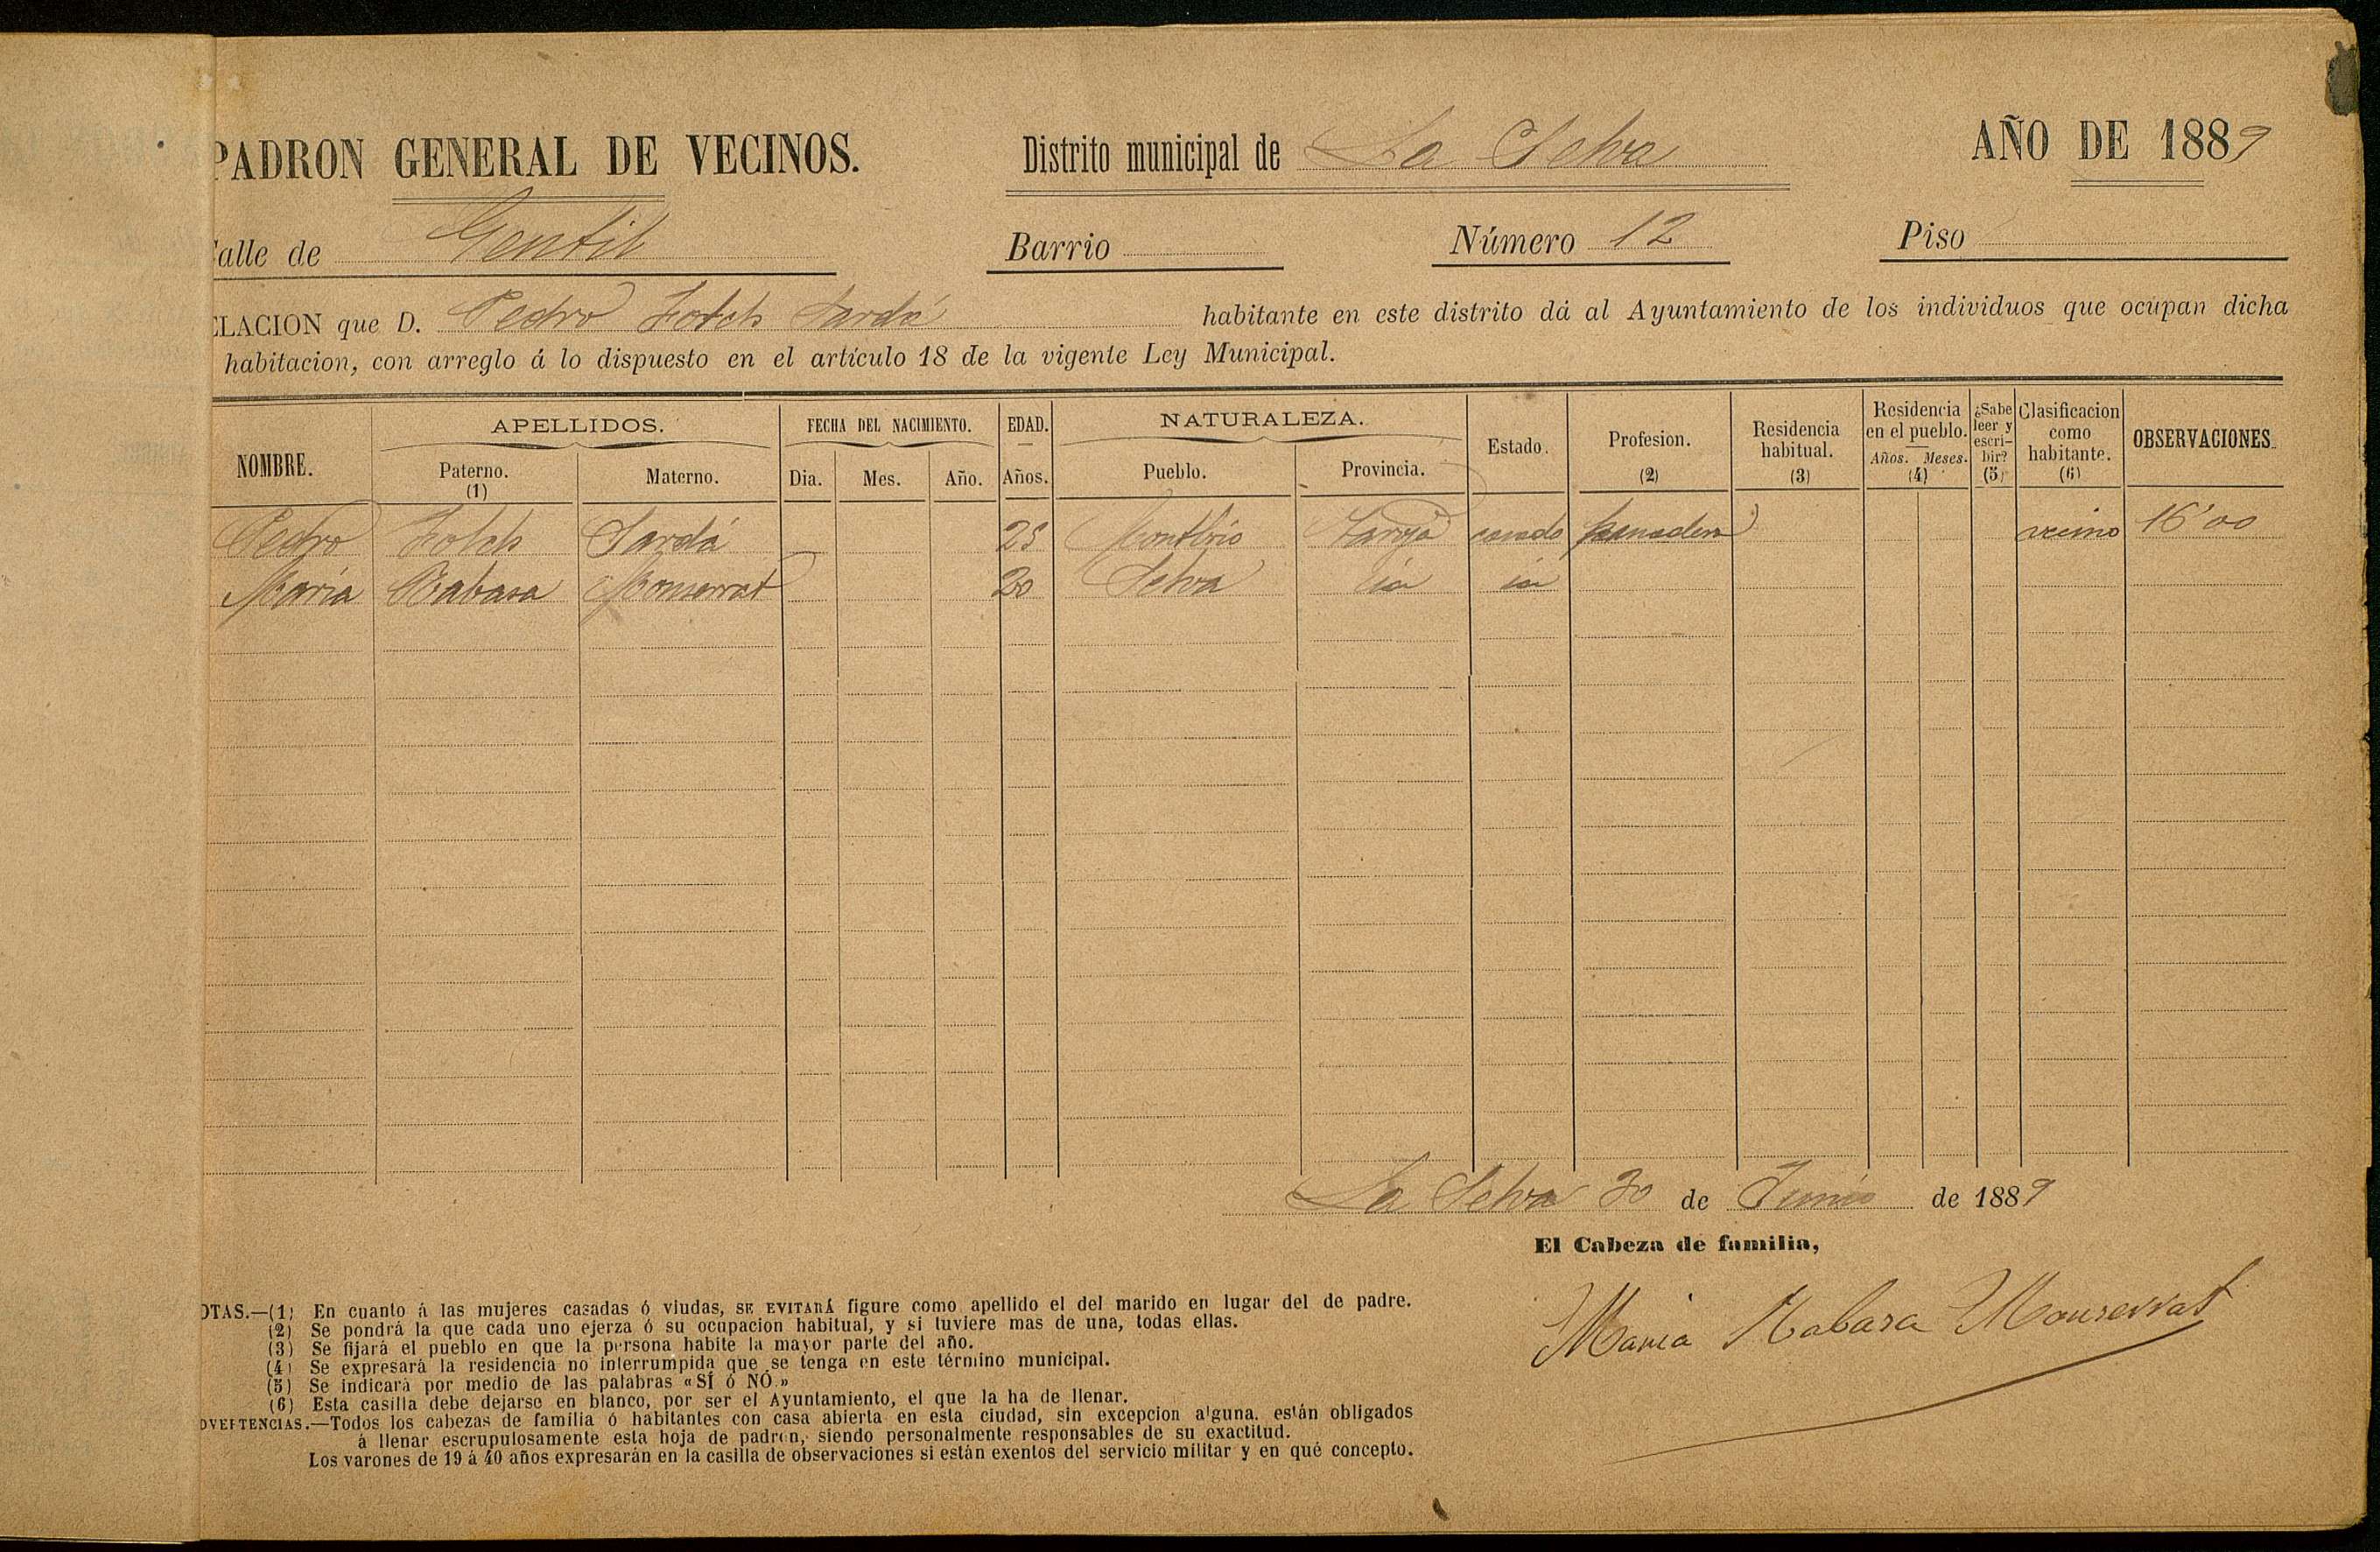 PADRON GENERAL DE VECINOS. Distrito municipal de La Selva AÑO DE 1889
alle de Gentil Barrio Número 12 Piso
ELACION que D. Pedro Folch Sardá habitante en este distrito dá al Ayuntamiento de los individuos que ocupan dicha
habitacion, con arreglo á lo dispuesto en el artículo 18 de la vigente Ley Municipal.
NOMBRE. APELLIDOS. Paterno. (1) Materno. FECHA DEL NACIMIENTO. Dia. Mes. Año. EDAD. Años. NATURALEZA. Pueblo. Provincia. Estado. Profesion. (2) Residencia habitual. (3) Residencia en el pueblo. Años. Meses. (4) ¿Sabe leer y escribir? (5) Clasificacion como habitante. (6) OBSERVACIONES.
Pedro Folch Sardá Montbrio casado panadero vecino 16'00
Maria Rabasa Monserrat 20 Selva id id
La Selva 30 de Junio de 1889
El Cabeza de familia,
Maria Rabasa Monserrat
OTAS.—(1) En cuanto á las mujeres casadas ó viudas, SE EVITARÁ figure como apellido el del marido en lugar del de padre.
(2) Se pondrá la que cada uno ejerza ó su ocupacion habitual, y si tuviere mas de una, todas ellas.
(3) Se fijará el pueblo en que la persona habite la mayor parte del año.
(4) Se expresará la residencia no interrumpida que se tenga en este término municipal.
(5) Se indicará por medio de las palabras «SÍ ó NÓ.»
(6) Esta casilla debe dejarse en blanco, por ser el Ayuntamiento, el que la ha de llenar.
DVERTENCIAS.—Todos los cabezas de familia ó habitantes con casa abierta en esta ciudad, sin excepcion alguna. están obligados
á llenar escrupulosamente esta hoja de padron, siendo personalmente responsables de su exactitud.
Los varones de 19 á 40 años expresarán en la casilla de observaciones si están exentos del servicio militar y en qué concepto.